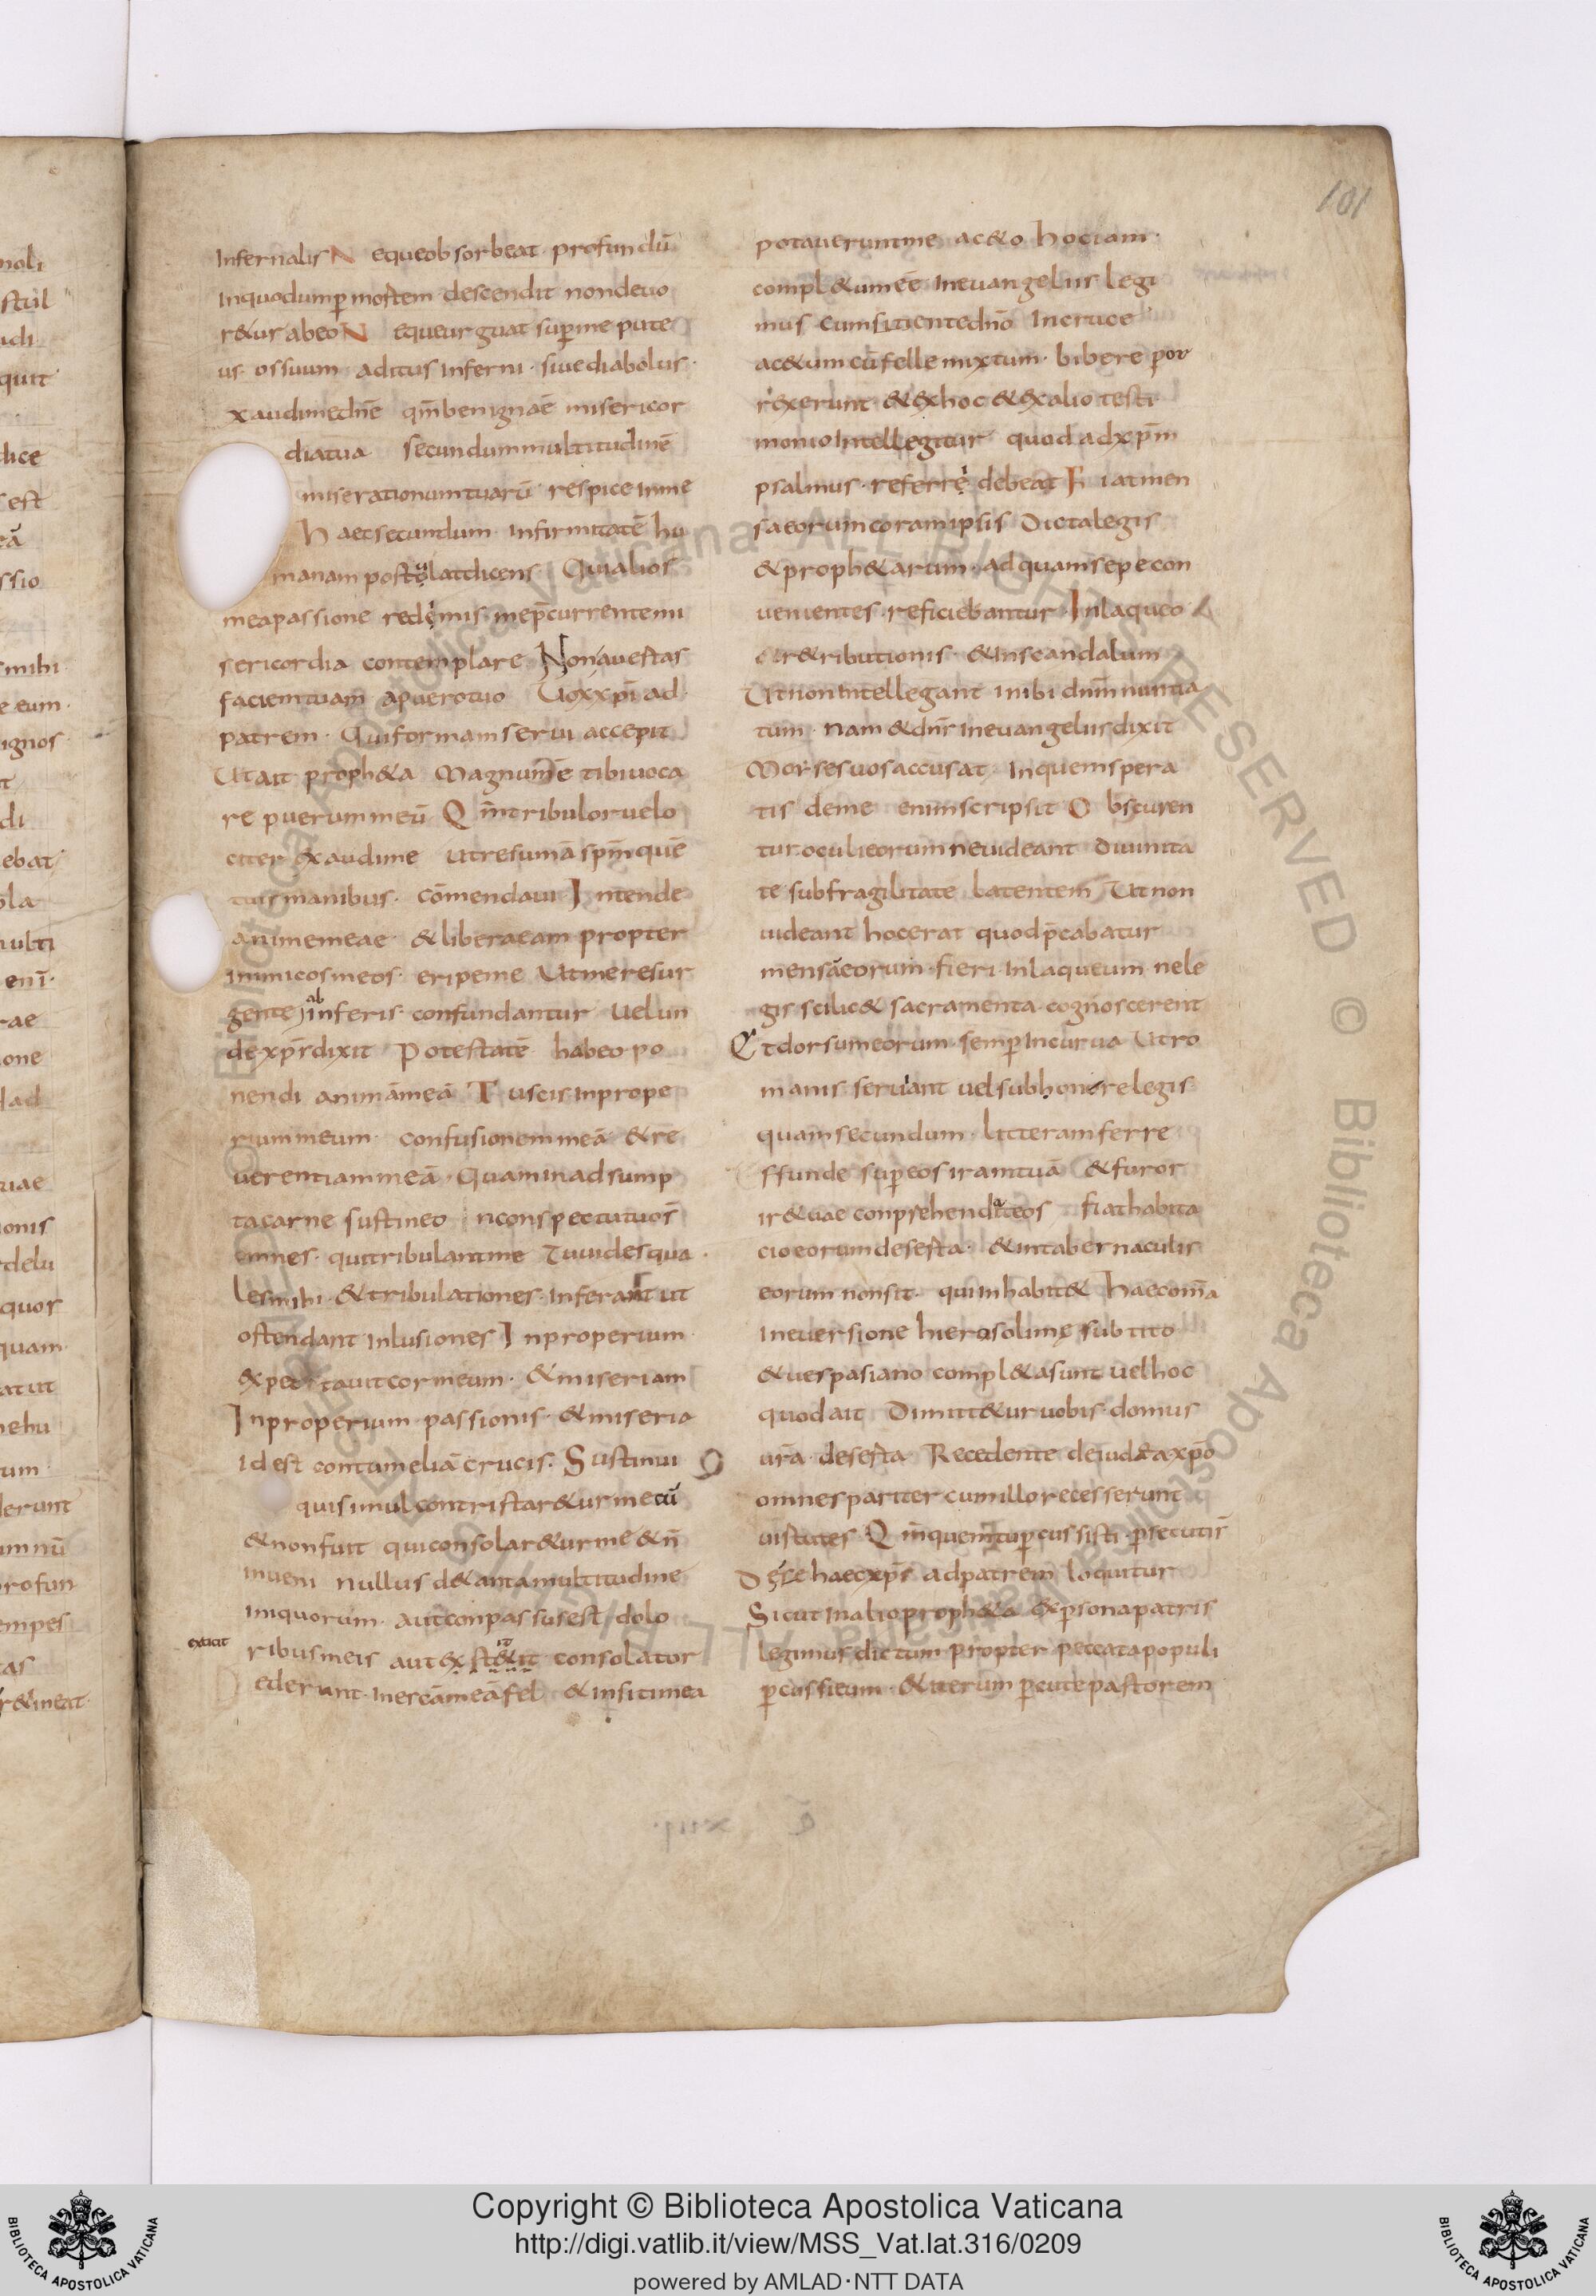 101
infernalis Neque obsorbeat profundū
inquo dum p̄ mortem descendit non deuo
r&ur abeo Neque urguat sup̄ me pute
us os suum aditus inferni · siue diabolus ·
xaudi me dn̄e qm̄ benigna ē misericor
dia tua secundum multitudinē
miserationum tuarū respice in me
haec secundum infirmitatē hu
manam postulat dicens Qui alios
mea passione redemis me p̄currente mi
sericordia contemplare Non auertas
faciem tuam a puero tuo Uox xp̄i ad
patrem · Qui formam serui accepit
Ut ait proph&a Magnum ē tibi uoca
re puerum meū Qm̄ tribulor uelo
citer exaudi me ut resumā sp̄m quē
tuis manibus · cōmendaui Intende
anime meae & libera eam propter
inimicos meos · eripe me Ut me resur
gente ab inferis · confundantur Uel un
de xp̄s dixit Potestatē habeo po
nendi animā meā Tu scis inprope
rium meum · confusionem meā & re
uerentiam meā · Quam in adsump
ta carne sustineo inconspectu tuo s̄
omnes · qui tribulant me Tu uides qua
les mihi · & tribulationes · inferant ut
ostendant inlusiones Inproperium
expectauit cor meum · & miseriam
Inproperium passionis · & miseria
id est contumeliā crucis · Sustinui
qui simul contristar&ur mecū
& non fuit qui consolar&ur me & n̄
inueni nullus de tanta multitudine
iniquorum · aut conpassus est dolo
extitit
ribus meis aut exst&it consolator
ederunt · in escā meā fel & in siti mea
potauerunt me ac&o hoc iam ·
compl&um ēe in euangeliis legi
mus cum sitiente dn̄o in cruce
ac&um cū felle mixtum · bibere por
rexerunt & ex hoc & ex alio testi
monio intellegitur quod ad xp̄m
psalmus · referre debeat Fiat men
sa eorum coram ipsis Dicta legis
& proph&arum · ad quam sepe con
uenientes · reficiebantur · In laqueo
& r&ributionis · & in scandalum
Ut non intellegant inibi dn̄m nuntia
tum · nam & dn̄s in euangeliis dixit
Moyses uos accusat in quem spera
tis de me enim scripsit Obscuren
tur oculi eorum ne uideant Diuinita
te sub fragilitate latentem Ut non
uideant hoc erat quod p̄cabatur
mensā eorum · fieri · in laqueum ne le
gis scilic& sacramenta · cognoscerent
Et dorsum eorum · semp̄ incurua Ut ro
manis seruiant uel sub honere legis
quam secundum · litteram ferre
ffunde sup̄ eos iram tuā & furor
ir& uae conprehendat eos fiat habita
cio eorum deserta · & in tabernaculis
eorum non sit · qui inhabit& haec om̄a
in euersione hierosolime sub tito
& uespasiano compl&a sunt uel hoc
quod ait Dimitt&ur uobis · domus
ur̄a · deserta Recedente de iudea xp̄o
omnes pariter cum illo recesserunt
uirtutes Qm̄ quem tu p̄cussisti · p̄secuti s̄
De se haec xp̄s ad patrem loquitur
Sicut in alio proph&a ex p̄sona patris
legimus dictum propter peccata populi
p̄cussi eum · & iterum p̄cute pastorem
Copyright © Biblioteca Apostolica Vaticana
http://digi.vatlib.it/view/MSS_Vat.lat.316/0209
powered by AMLAD·NTT DATA